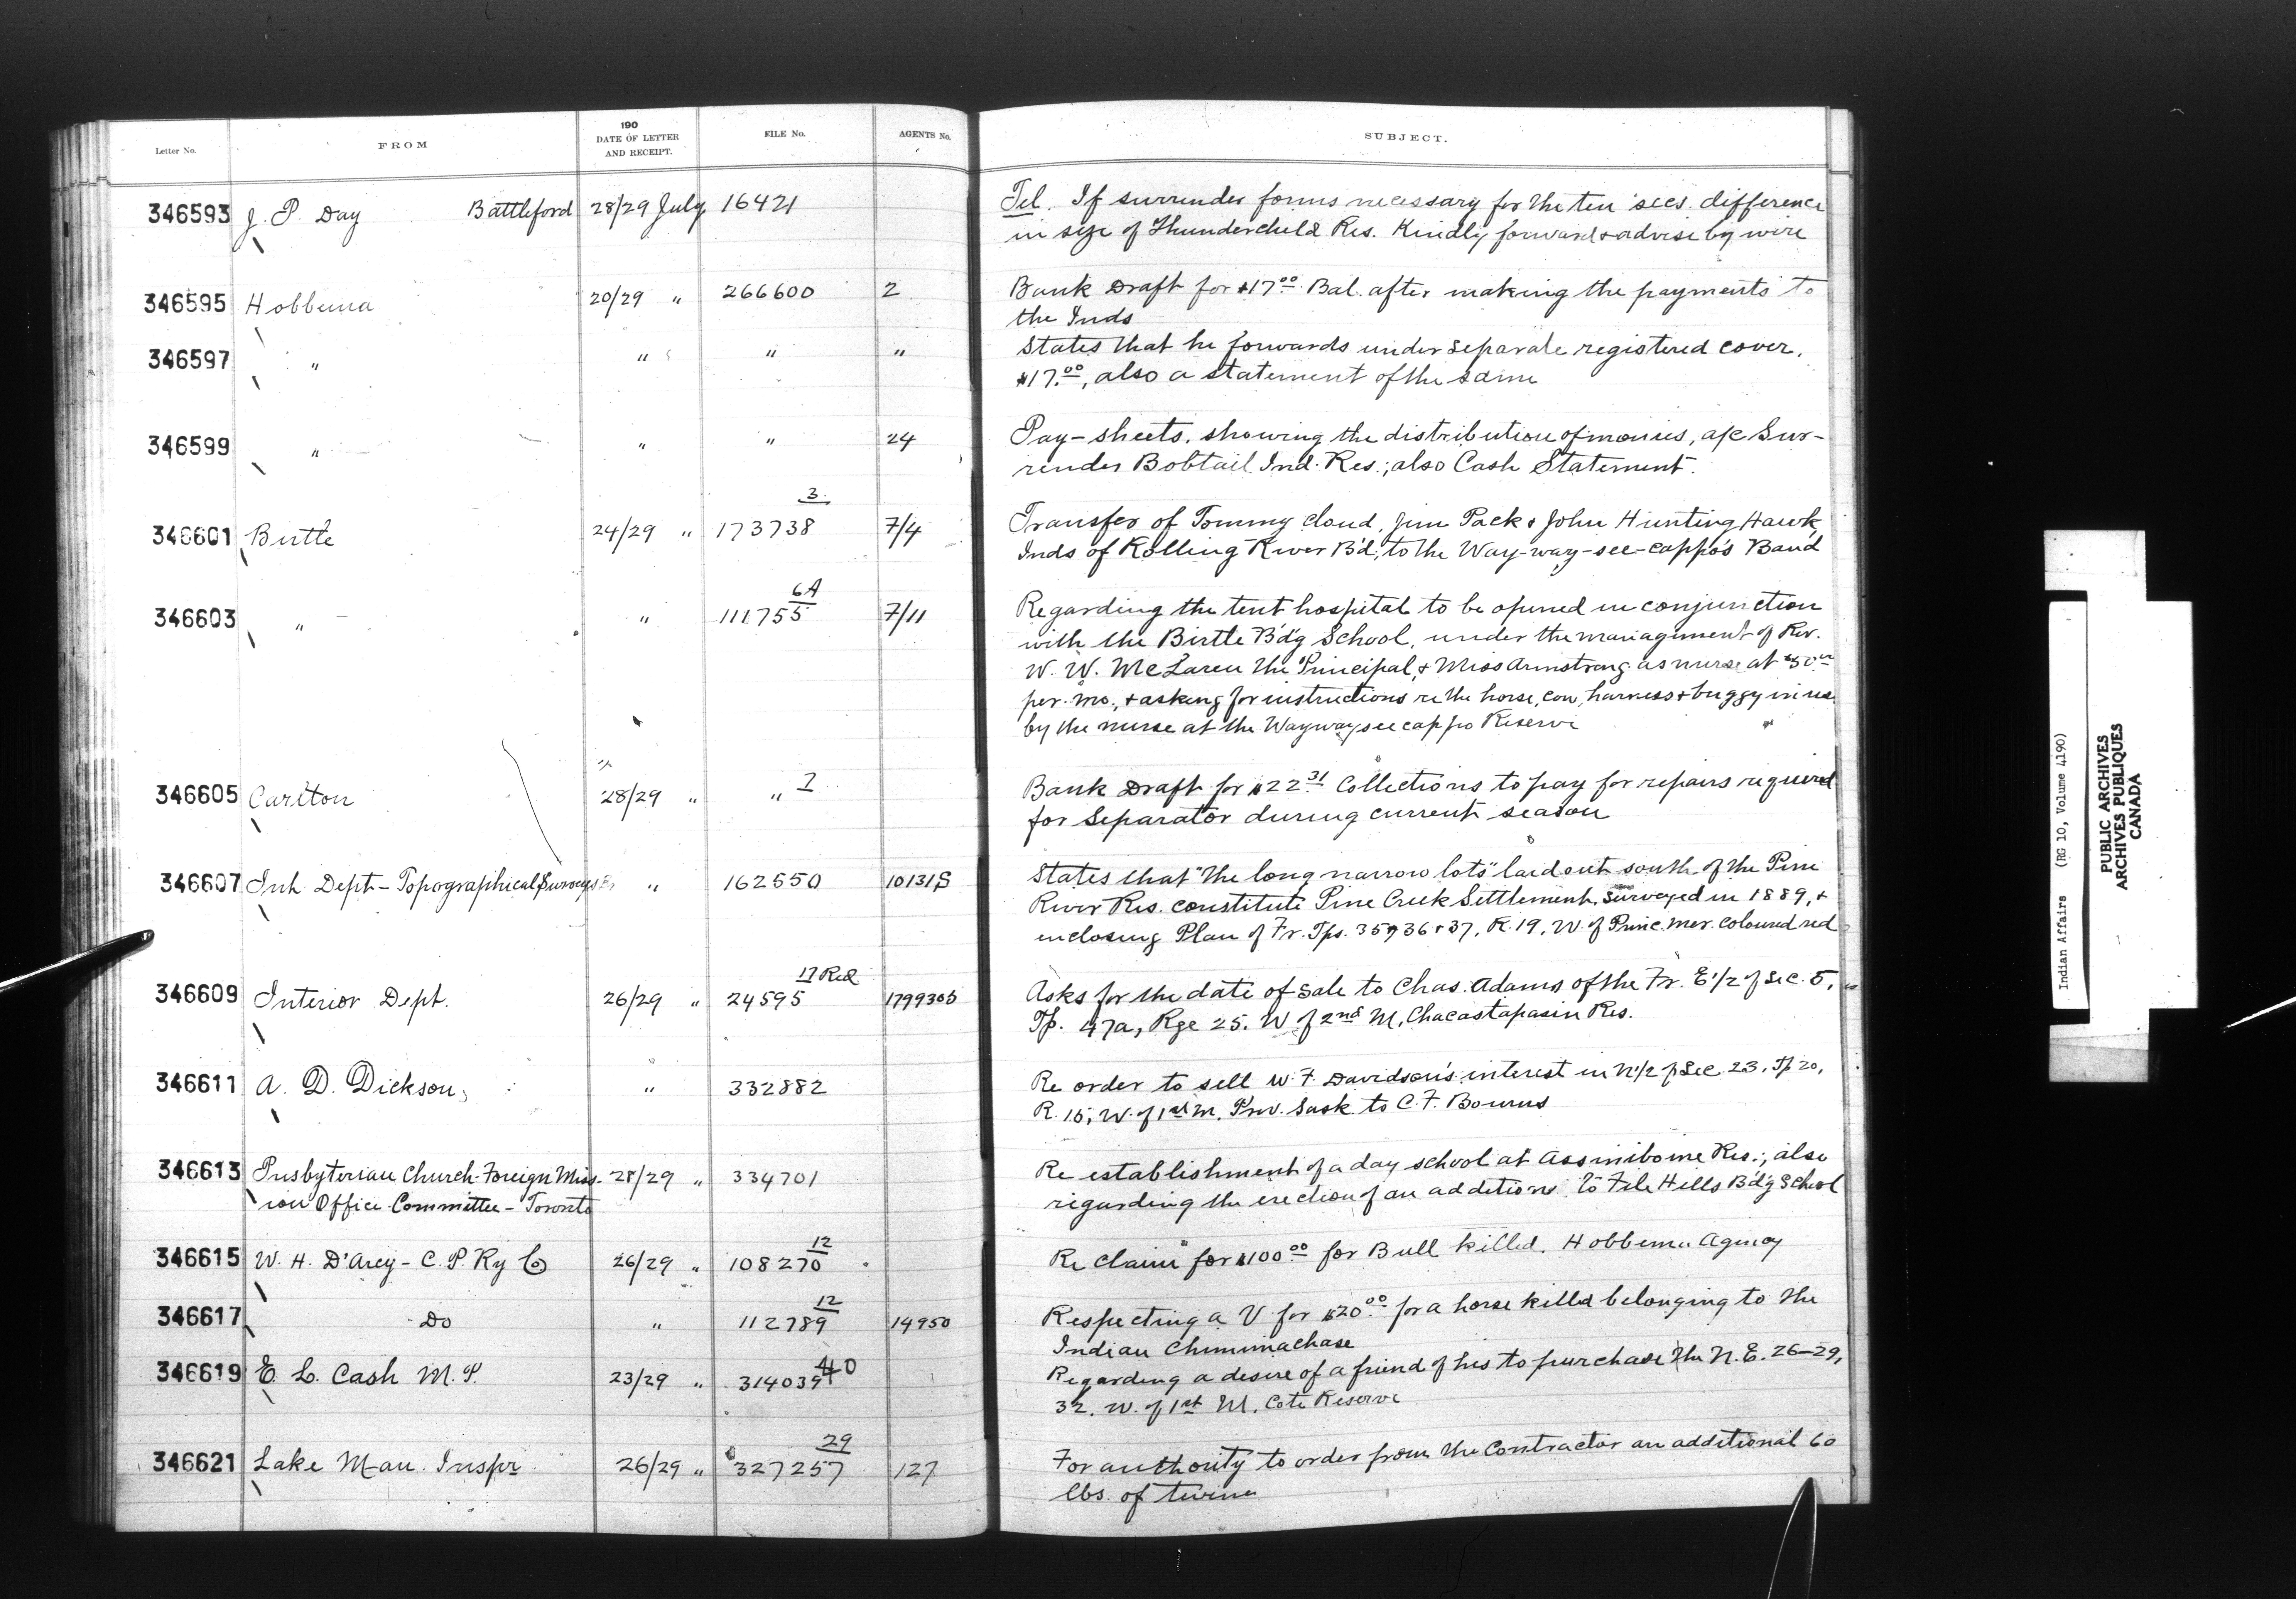 Letter No. FROM 190 DATE OF LETTER AND RECEIPT. FILE No. AGENTS No. SUBJECT.
346593 J. P. Day Battleford 28/29 July 16421 Tel. If surrender forms necessary for the ten secs. difference
in size of Thunderchild Res. Kindly forward & advise by wire
346595 Hobbema 20/29 " 266600 2 Bank Draft for $17.00 Bal. after making the payments to
the Inds
346597 " " " " States that he forwards under separate registered cover,
$17.00, also a statement of the same
346599 " " " 24 Pay-sheets, showing the distribution of monies, a/c Sur-
render Bobtail Ind. Res.; also Cash Statement.
346601 Birtle 24/29 " 173738 3 7/4 Transfer of Tommy Cloud, Jim Pack & John Hunting Hawk,
Inds of Rolling River B'd, to the Way-way-see-cappo's Band
346603 " " 111755 6A 7/11 Regarding the tent hospital to be opened in conjunction
with the Birtle B'd'g School, under the management of Rev.
W. W. McLaren the Principal, & Miss Armstrong as nurse at $50.00
per. mo., & asking for instructions re the horse, cow, harness & buggy in use
by the nurse at the Waywayseecappo Reserve
346605 Carlton 28/29 " " 7 Bank Draft for $22.31 Collections to pay for repairs required
for Separator during current season
346607 Int. Dept - Topographical Surveys " 162550 10131S States that "the long narrow lots" laid out south of the Pine
River Res. constitute Pine Creek Settlement, surveyed in 1889, &
enclosing Plan of Fr. Tps. 35, 36 & 37, R. 19, W. of Princ. Mer. coloured red
346609 Interior Dept. 26/29 " 24595 17 Red 1799305 Asks for the date of sale to Chas. Adams of the Fr. E 1/2 of Sec. 5,
Tp. 47a, Rge 25. W of 2nd M, Chacastapasin Res.
346611 A. D. Dickson, " 332882 Re order to sell W. F. Davidson's interest in N 1/2 of Sec 23, Tp 20,
R. 15, W. of 1st M. Prov. Sask. to C. F. Bourns
346613 Presbyterian Church Foreign Miss- 28/29 " 334701 Re establishment of a day school at Assiniboine Res.; also
ion Office Committee - Toronto regarding the erection of an addition to File Hills B'd'g School
346615 W. H. D'Arcy - C. P. Ry Co 26/29 " 108270 12 Re claim for $100.00 for Bull killed. Hobbema Agency
346617 Do " 112789 12 14950 Respecting a V for $20.00 for a horse killed belonging to the
Indian Chimimachase
346619 E. L. Cash M. P. 23/29 " 314039 40 Regarding a desire of a friend of his to purchase the N. E. 26-29,
32. W. of 1st M. Cote Reserve
346621 Lake Man. Inspr 26/29 " 327257 29 127 For authority to order from the Contractor an additional 60
lbs. of twine
Indian Affairs (RG 10, Volume 4190)
PUBLIC ARCHIVES
ARCHIVES PUBLIQUES
CANADA